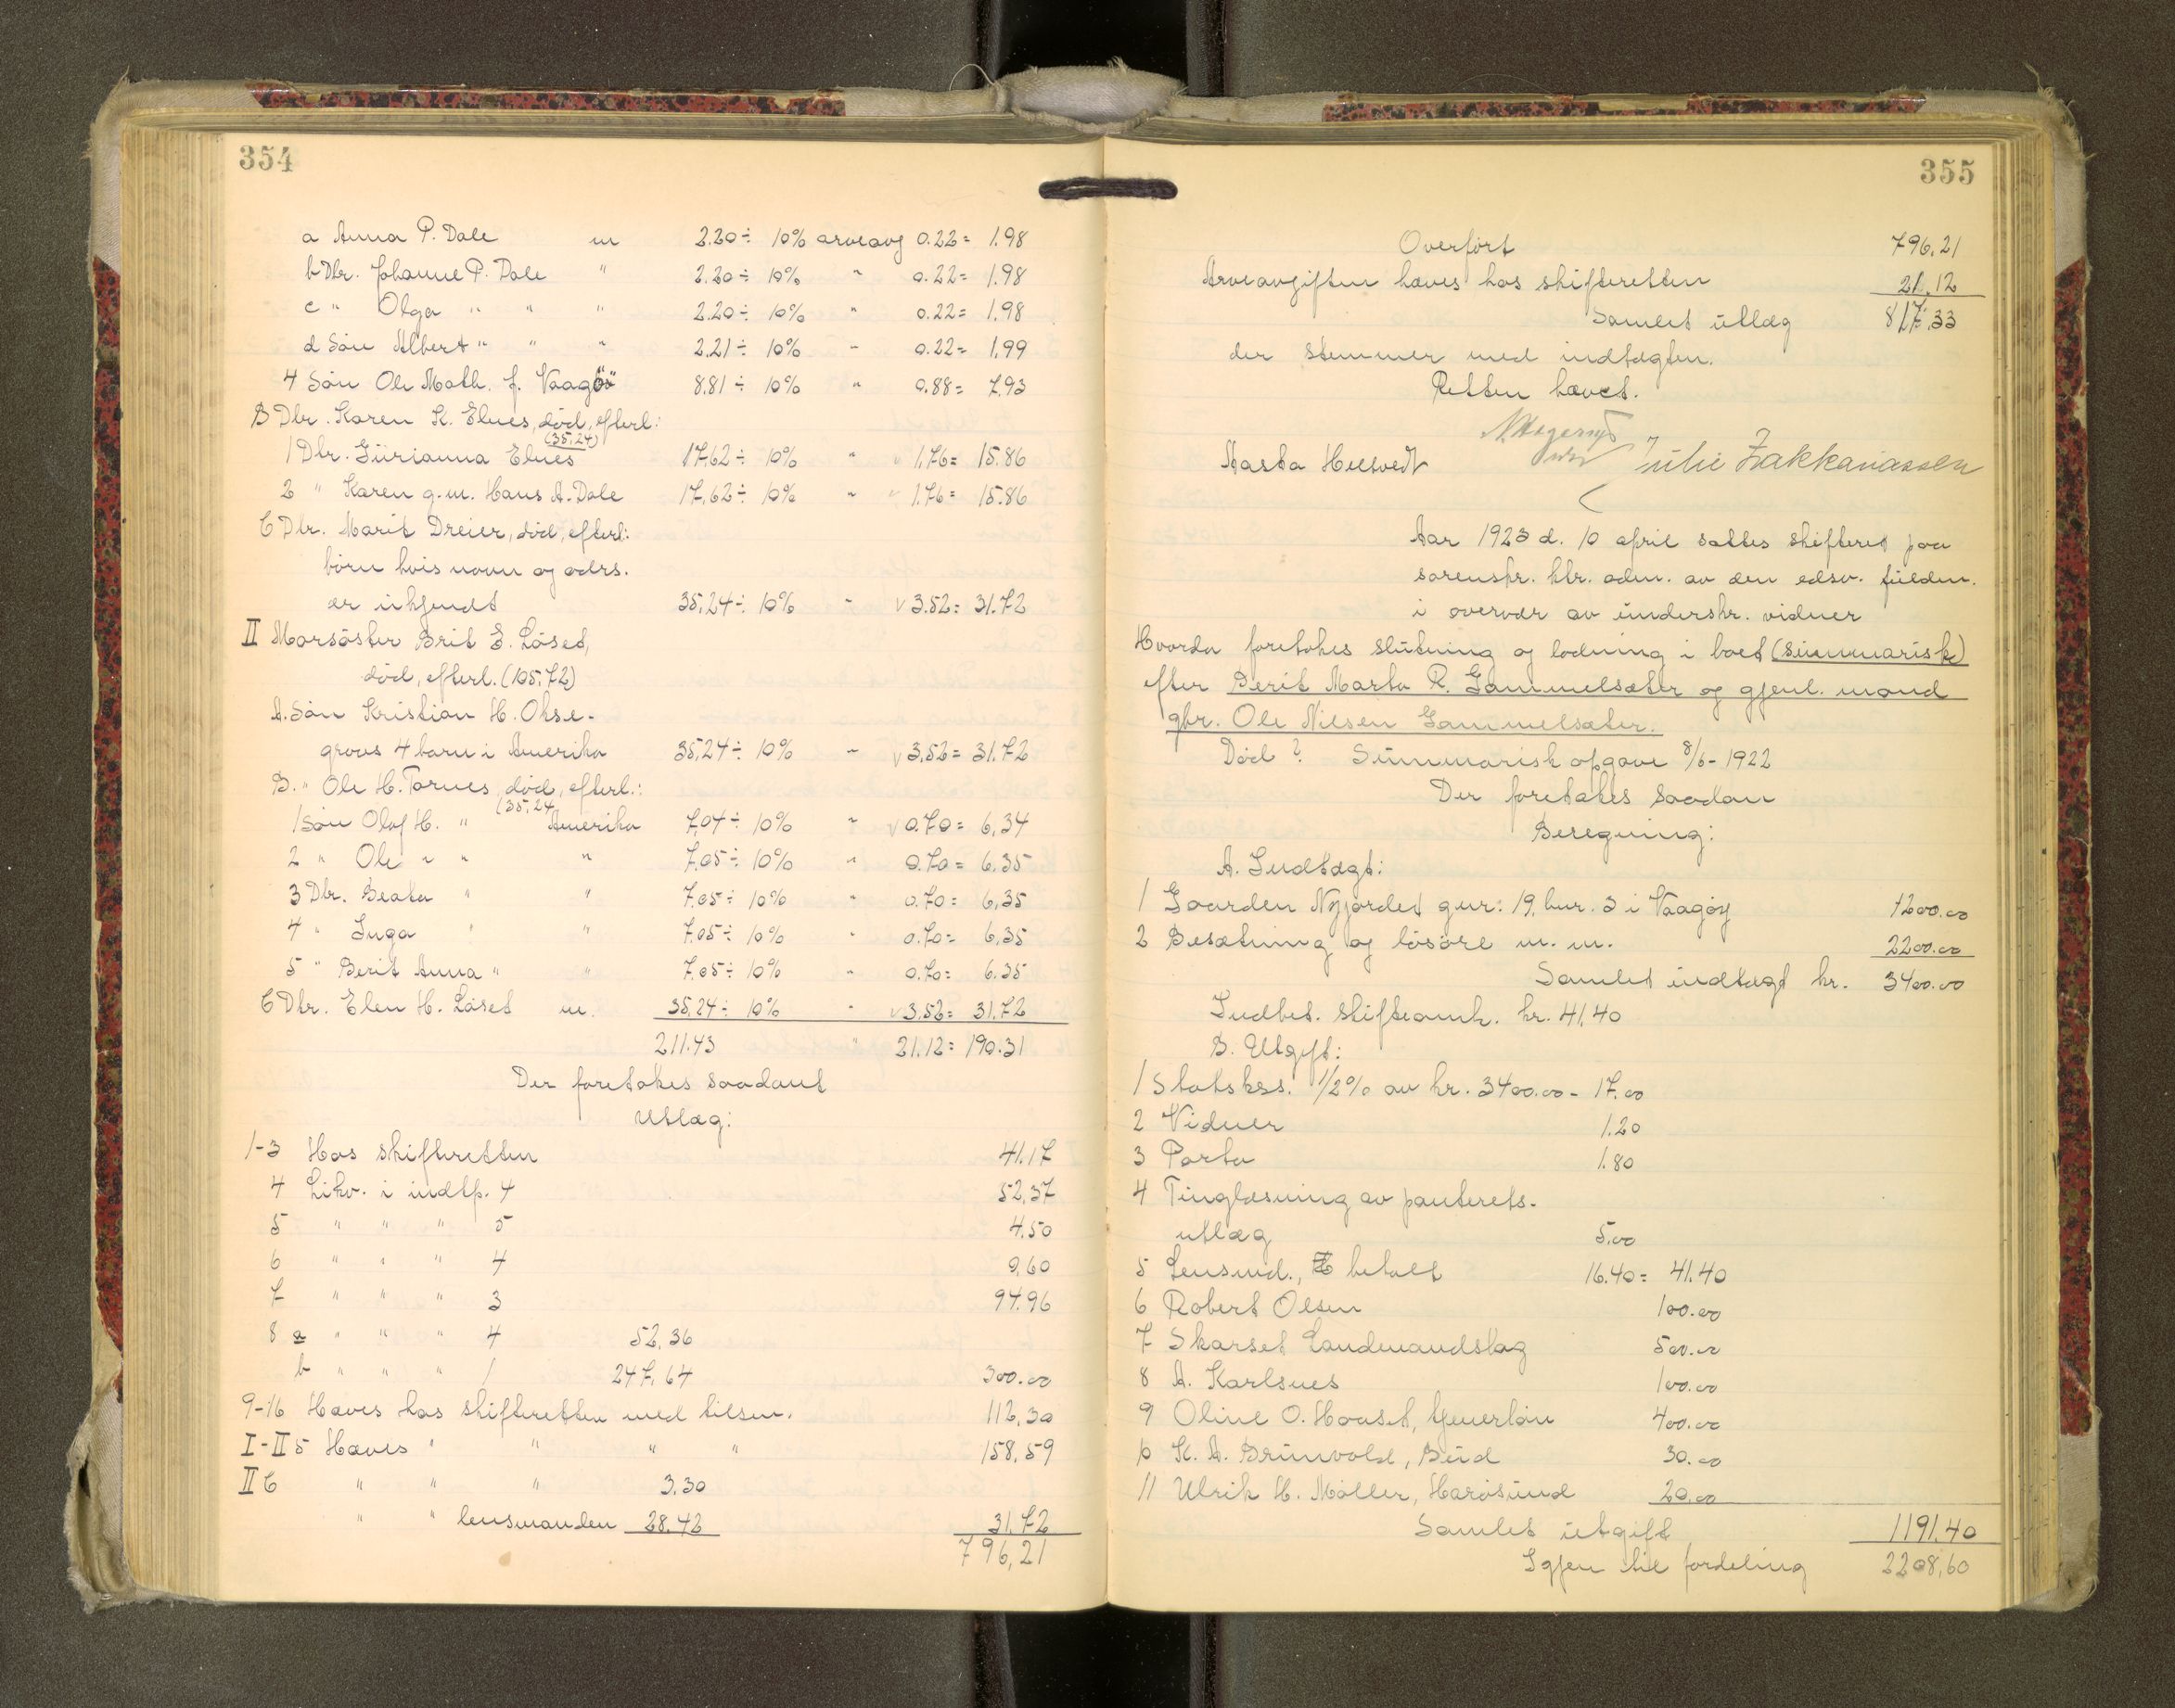 354
a Anna P. Dale m 2.20 ÷ 10% arveavg 0.22 = 1.98
b Dtr. Johanne P. Dale " 2.20 ÷ 10% " 0.22 = 1.98
c " Olga " " " 2.20 ÷ 10% " 0.22 = 1.98
d Sön Albert " " " 2.21 ÷ 10% " 0.22 = 1.99
4 Sön Ole Math. f. Vaagö 8.81 ÷ 10% " 0.88 = 7.93
B Dtr. Karen K. Elnes, död, efterl:
(35,24)
1 Dtr. Gürianna Elnes 17.62 ÷ 10% " 1.76 = 15.86
2 " Karen g.m. Hans A. Dale 17.62 ÷ 10% " 1.76 = 15.86
C Dtr. Marit Dreier, död, efterl:
börn hvis navn og adrs.
er ükjendt 35.24 ÷ 10% " 3.52 = 31.72
II Morsöster Brit E. Löset,
död, efterl. (105,72)
A. Sön Kristian H. Okse-
groves 4 barn i Amerika 35,24 ÷ 10% " 3,52 = 31.72
B. " Ole H. Tornes, död, efterl.:
(35,24
1 Sön Olaf H. " Amerika 7,04 ÷ 10% " 0.70 = 6,34
2 " Ole " " " 7.05 ÷ 10% " 0.70 = 6,35
3 Dtr. Beata " " 7.05 ÷ 10% " 0.70 = 6,35
4 " Inga " " 7.05 ÷ 10% " 0.70 = 6,35
5 " Berit Anna " " 7.05 ÷ 10% " 0.70 = 6.35
C Dtr. Elen H. Löset m. 35,24 ÷ 10% " 3,52 = 31.72
211.43 " 21.12 = 190.31
Der foretakes saadant
Utlæg:
1-3 Hos skifteretten 41.17
4 Likv. i indtp. 4 52,37
5 " " " 5 4.50
6 " " " 4 0,60
7 " " " 3 94.96
8 a " " " 4 52,36
b " " " 1 247,64 300.00
9-16 Hæves hos skifteretten med tilsm. 112,30
I-II5 Hæves " " " " 158,59
II C " " " 3.30
" " lensmanden 28.42 31.72
796,21
355
Overfört 796,21
Arveavgiften hæves hos skifteretten 21.12
Samlet ütlæg 817,33
der stemmer med indtægten.
Retten hævet.
Aasta Helsvedt Julie Zakkariassen
Aar 1923 d. 10 april sattes skifteret paa
sorenskr. ktr. adm. av den edsv. füldm.
i overvær av ünderskr. vidner
Hvorda foretokes slütning og lodning i boet (sümmarisk)
efter Berit Marta R. Gammelsæter og gjenl. mand
gbr. Ole Nilsen Gammelsæter.
Död ? Sümmarisk opgave 8/6-1922
Der foretakes saadan
Beregning:
A. Indtægt:
1 Gaarden Nyjordet gnr: 19, bnr. 3 i Vaagöy 1200.00
2 Besætning og lösöre m. m. 2200.00
Samlet indtægt kr. 3400.00
Indbet. skifteomk. kr. 41,40
B. Utgift:
1 Statskss. 1/2% av kr. 3400.00 - 17.00
2 Vidner 1.20
3 Porto 1.80
4 Tinglæsning av panterets-
utlæg 5.00
5 Lensmd., betalt 16.40 = 41.40
6 Robert Olsen 100.00
7 Skarset Landmandslag 500.00
8 A. Karlsnes 100.00
9 Oline O. Hoaset, tjenerlön 400.00
10 K. A. Brünvold, Büd 30.00
11 Ulrik H. Möller, Harösünd 20.00
Samlet ütgift 1191.40
Igjen til fordeling 2208,60